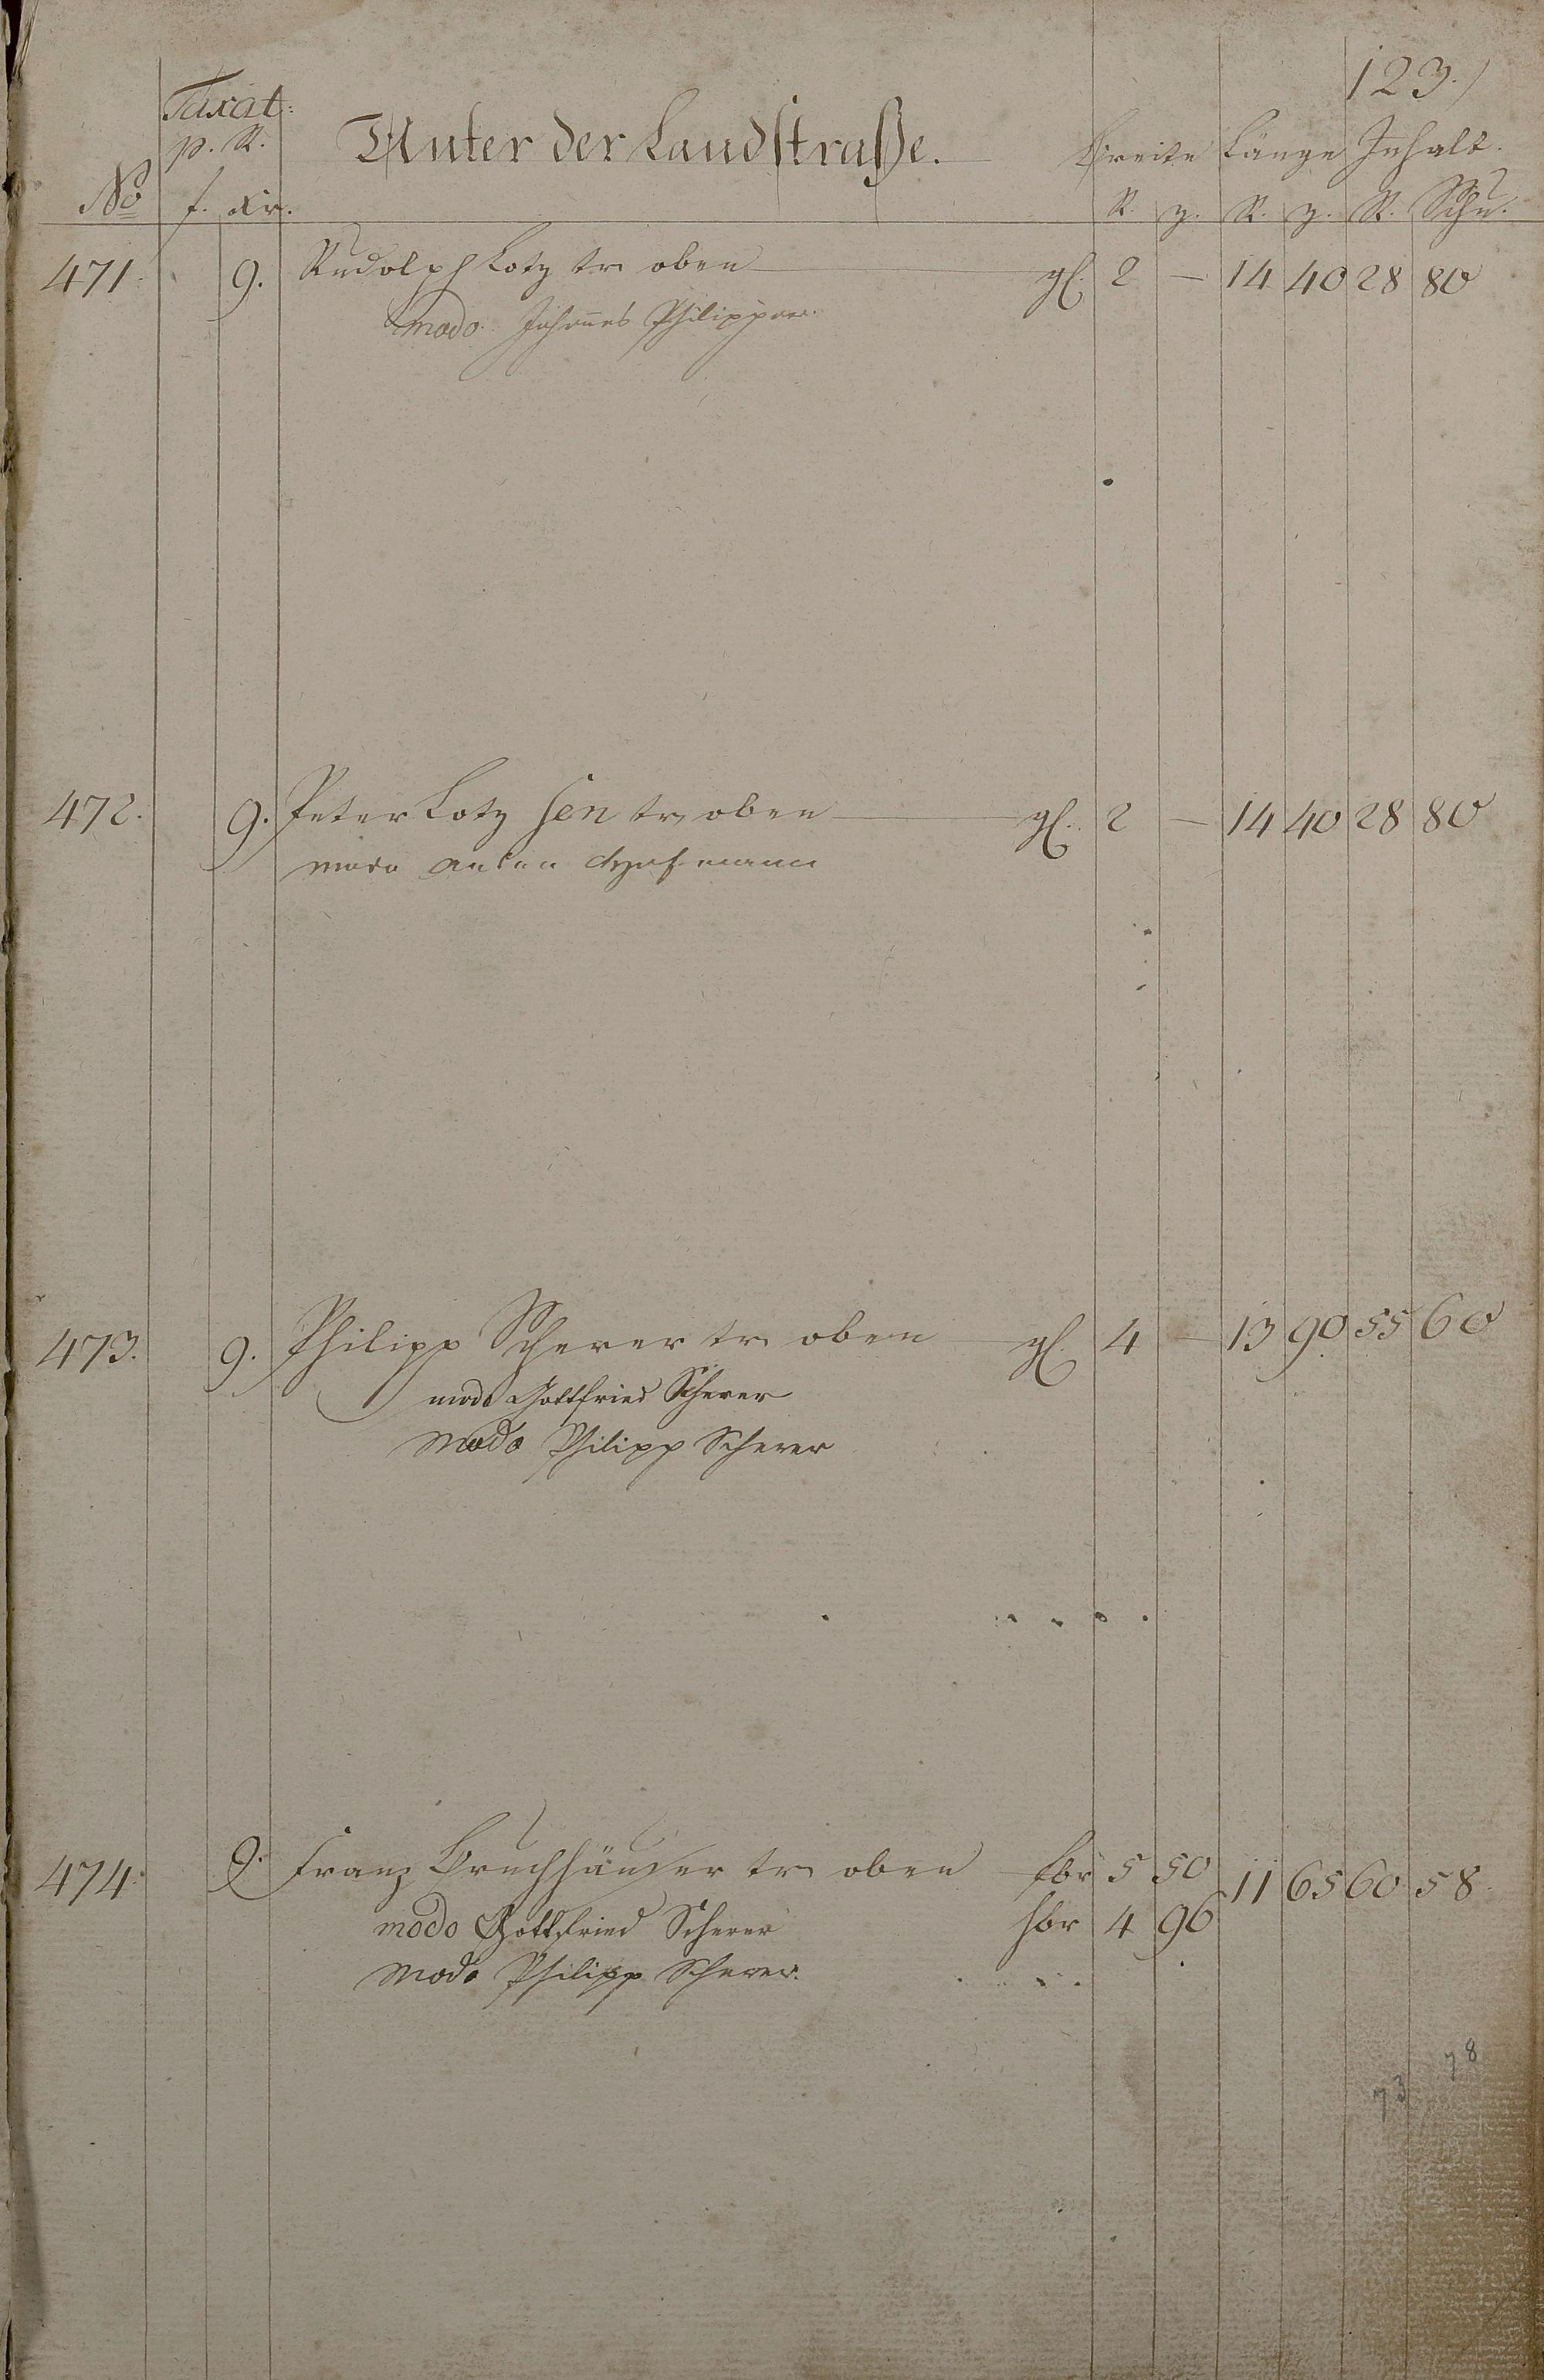 123.
Taxat:
p. R.
Unter der Landstraße. Breite Länge Inhalt.
No f. Xr. R. z. R. z. R. Schu.
471. 9. Rudolph Lotz tr. oben gl. 2 — 14 40 28 80
modo Johannes Philippar.
472. 9. Peter Lotz sen tr. oben gl. 2 — 14 40 28 80
modo Anton
473. 9. Philipp Scherer tr. oben gl. 4 — 13 90 55 60
modo Gottfried Scherer
modo Philipp Scherer
474. 9. Franz Bruchhäuser tr. oben fbr 5 50 11 65 60 58
modo Gottfried Scherer hbr 4 96
modo Philipp Scherer.
78
73